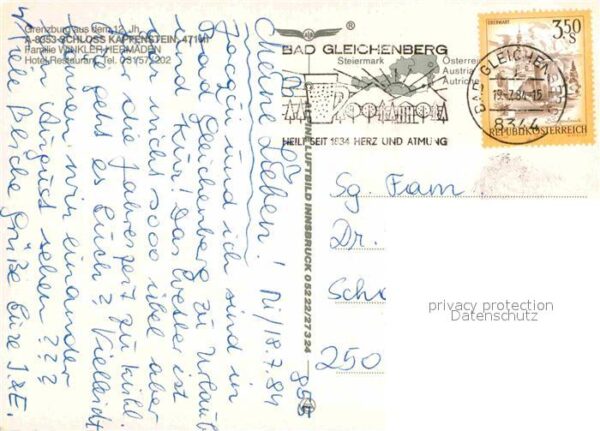 Grenzburg aus dem 12. Jh.
A-8353 SCHLOSS KAPFENSTEIN, 471m
Familie WINKLER-HERMADEN
Hotel-Restaurant, Tel. 03157/202
Meine Lieben! Mi/18.7.84
und ich sind in
Bad Gleichenberg zu Urlaub
und Kur! Das Wetter ist
nicht sooo übel aber
die Jahreszeit zu kühl.
Wie geht es Euch? Vielleicht
können wir einander
im August sehen???
Viele Grüße Eure I.+E.
BAD GLEICHENBERG
Steiermark
Österreich
Austria
Autriche
HEILT SEIT 1834 HERZ UND ATMUNG
BAD GLEICHENBERG
19.-7.84-15
8344
EBERWART
3.50 S
REPUBLIK ÖSTERREICH
LUFTBILD INNSBRUCK 05222/27324
855
Sg. Fam.
Dr.
Sch
250
privacy protection
Datenschutz